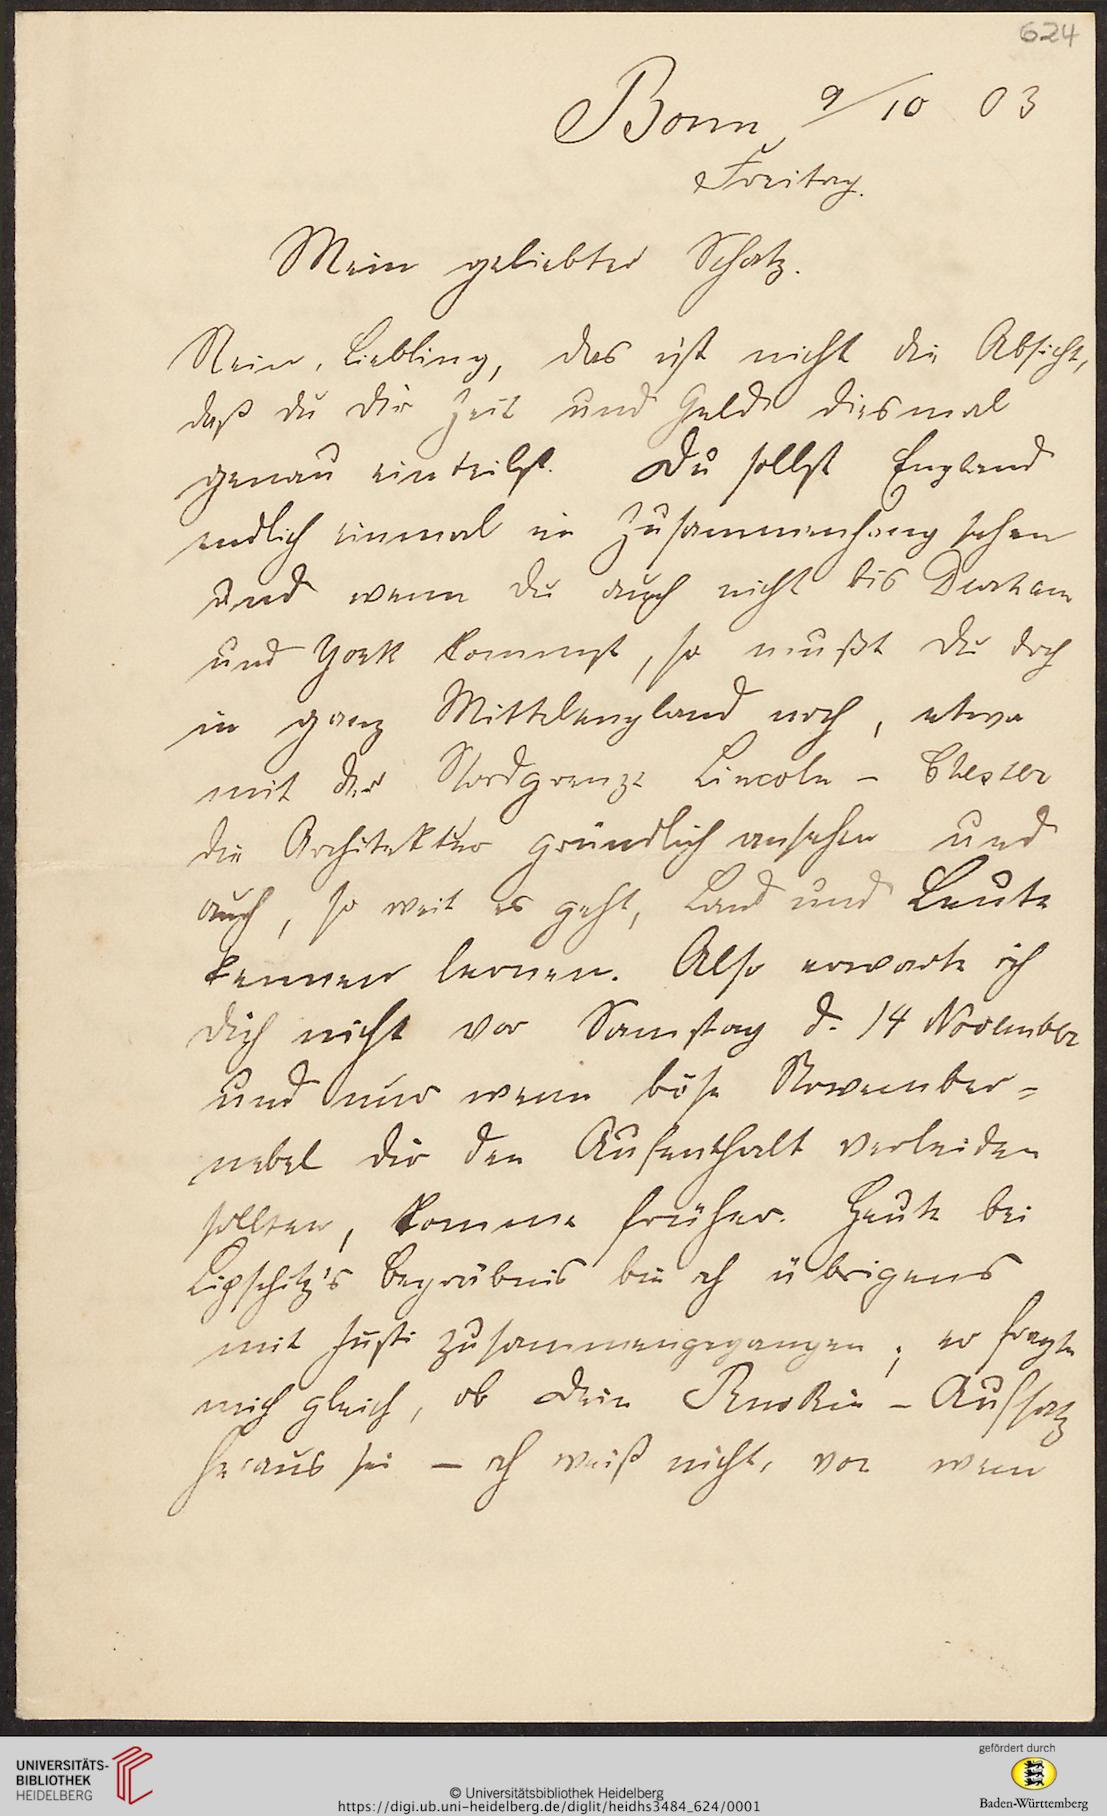 624
Bonn, 9/10 03
Freitag.
Mein geliebter Schatz.
Nein, Liebling, das ist nicht die Absicht,
daß du dir Zeit und Geld diesmal
genau einteilst. Du sollst England
endlich einmal im Zusammenhang sehen
und wenn du auch nicht bis Durham
und York kommst, so mußt du doch
in ganz Mittelengland noch, etwa
mit der Nordgrenze Lincoln - Chester
die Architektur gründlich ansehen und
auch, so weit es geht, Land und Leute
kennen lernen. Also erwarte ich
dich nicht vor Samstag d. 14 November
und nur wenn böse November-
nebel dir den Aufenthalt verleiden
sollten, komme früher. Heute bei
Lipschitz's Begräbnis bin ich übrigens
mit Justi zusammengegangen; er fragte
mich gleich, ob dein Ruskin - Aufsatz
heraus sei – ich weiß nicht, von wem
UNIVERSITÄTS-
BIBLIOTHEK
HEIDELBERG
© Universitätsbibliothek Heidelberg
https://digi.ub.uni-heidelberg.de/diglit/heidhs3484_624/0001
gefördert durch
Baden-Württemberg